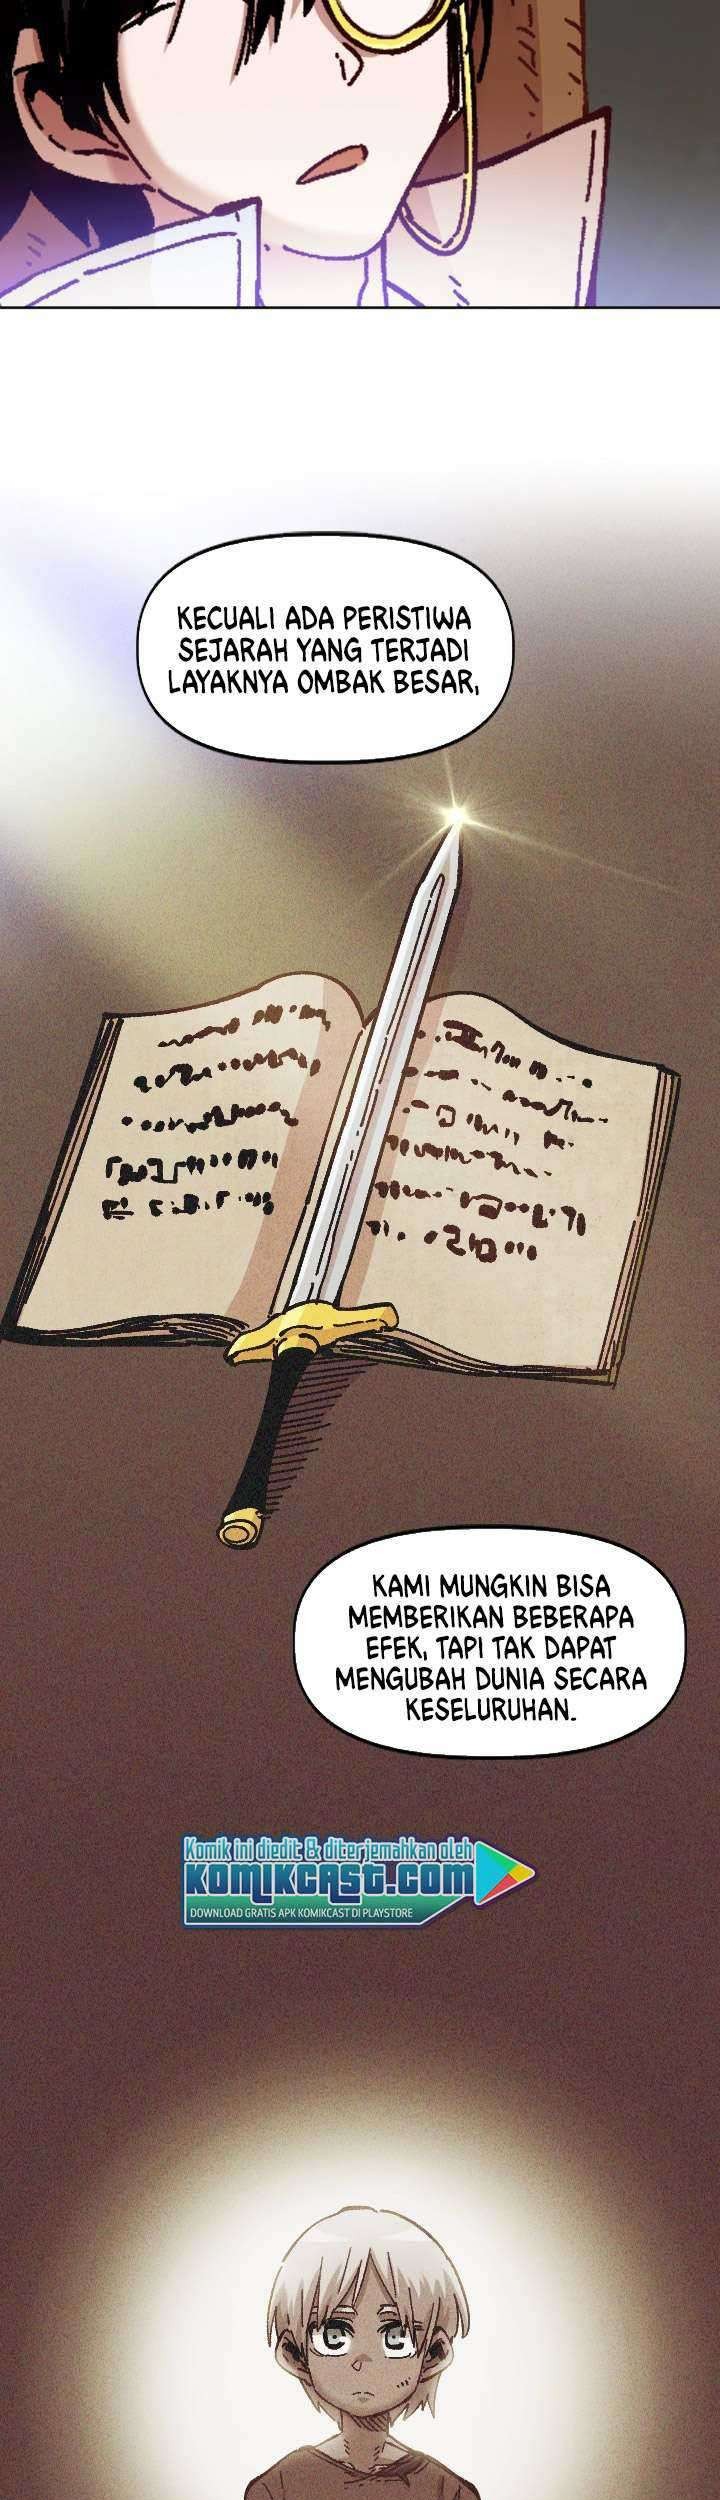 KECUALI ADA PERISTIWA
SEJARAH YANG TERJADI
LAYAKNYA OMBAK BESAR,
KAMI MUNGKIN BISA
MEMBERIKAN BEBERAPA
EFEK, TAPI TAK DAPAT
MENGUBAH DUNIA SECARA
KESELURUHAN.
Komik ini diedit & diterjemahkan oleh
KOMIKCAST.COM
DOWNLOAD GRATIS APK KOMIKCAST DI PLAYSTORE